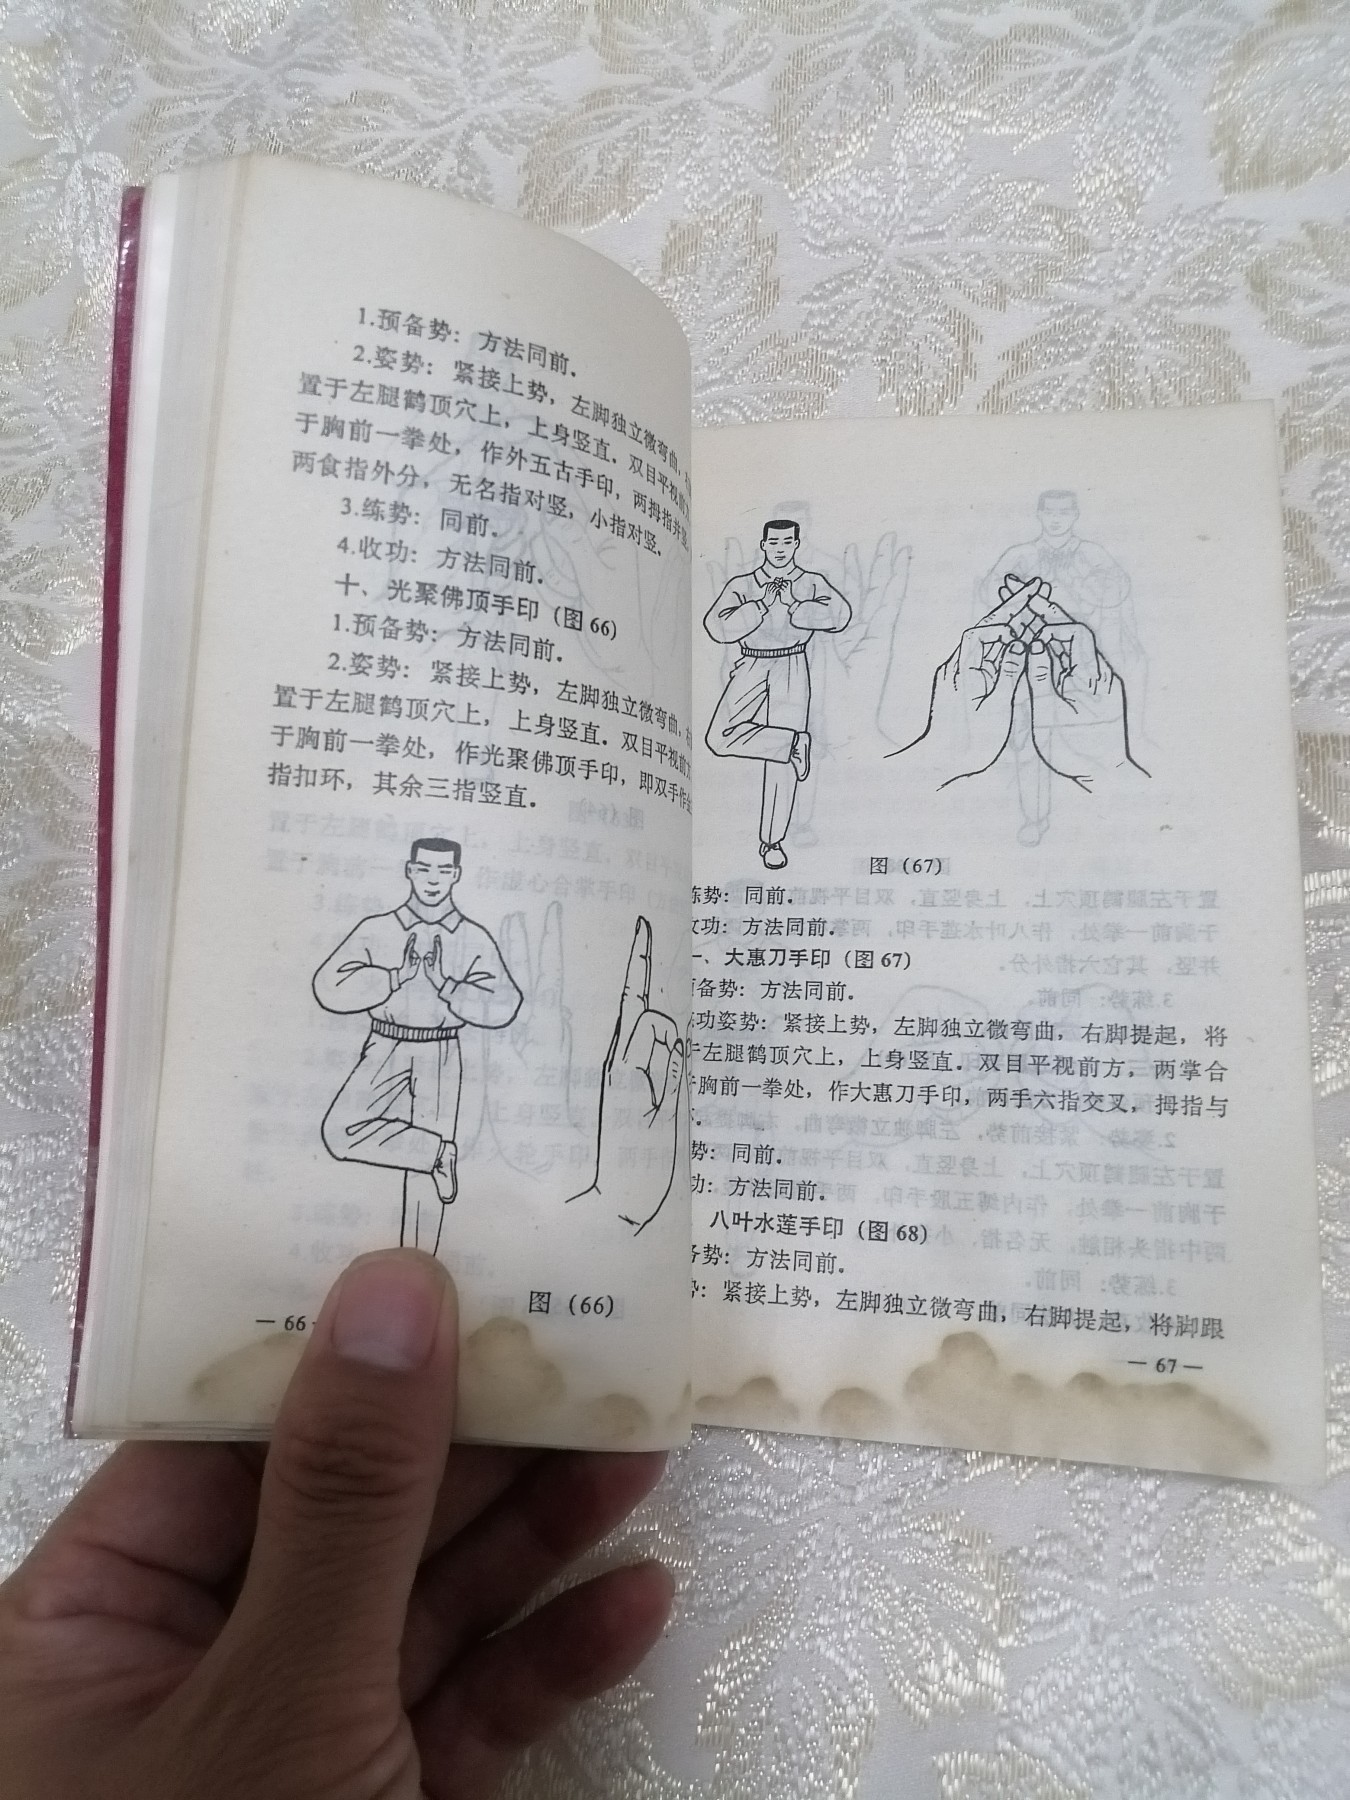 1.预备势：方法同前．
2.姿势：紧接上势，左脚独立微弯曲，
置于左腿鹤顶穴上，上身竖直．双目平视前
于胸前一拳处，作外五古手印，两拇指并竖
两食指外分，无名指对竖，小指对竖．
3.练势：同前．
4.收功：方法同前．
十、光聚佛顶手印（图66）
1.预备势：方法同前．
2.姿势：紧接上势，左脚独立微弯曲，
置于左腿鹤顶穴上，上身竖直．双目平视前
于胸前一拳处，作光聚佛顶手印，即双手作
指扣环，其余三指竖直．
图（66）
— 66
图（67）
练势：同前．
功：方法同前．
一、大惠刀手印（图67）
备势：方法同前．
功姿势：紧接上势，左脚独立微弯曲，右脚提起，将
于左腿鹤顶穴上，上身竖直．双目平视前方，两掌合
于胸前一拳处，作大惠刀手印，两手六指交叉，拇指与
势：同前．
功：方法同前．
八叶水莲手印（图68）
备势：方法同前．
势：紧接上势，左脚独立微弯曲，右脚提起，将脚跟
— 67 —